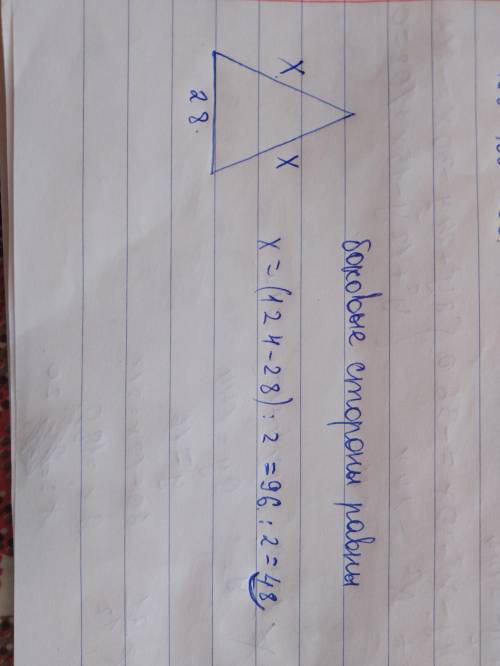 боковые стороны равны
X
X
28.
X = (124 - 28) : 2 = 96 : 2 = 48.